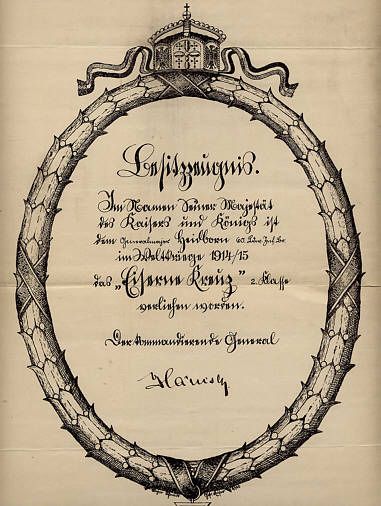 Besitzzeugnis.
Im Namen Seiner Majestät
des Kaisers und Königs ist
dem Generalmajor Heidborn
im Weltkriege 1914/15
das „Eiserne Kreuz" 2. Klasse
verliehen worden.
Der kommandierende General